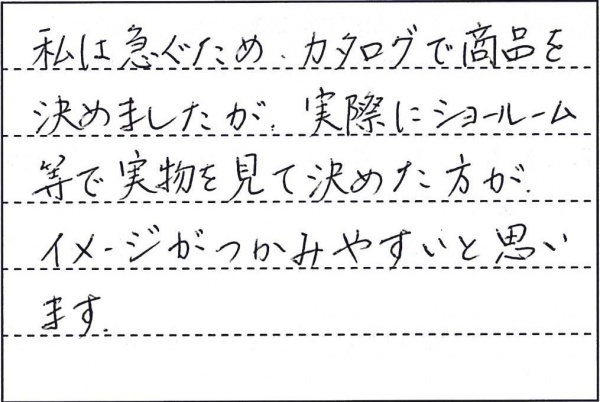 私は急ぐため、カタログで商品を
決めましたが、実際にショールーム
等で実物を見て決めた方が、
イメージがつかみやすいと思い
ます。